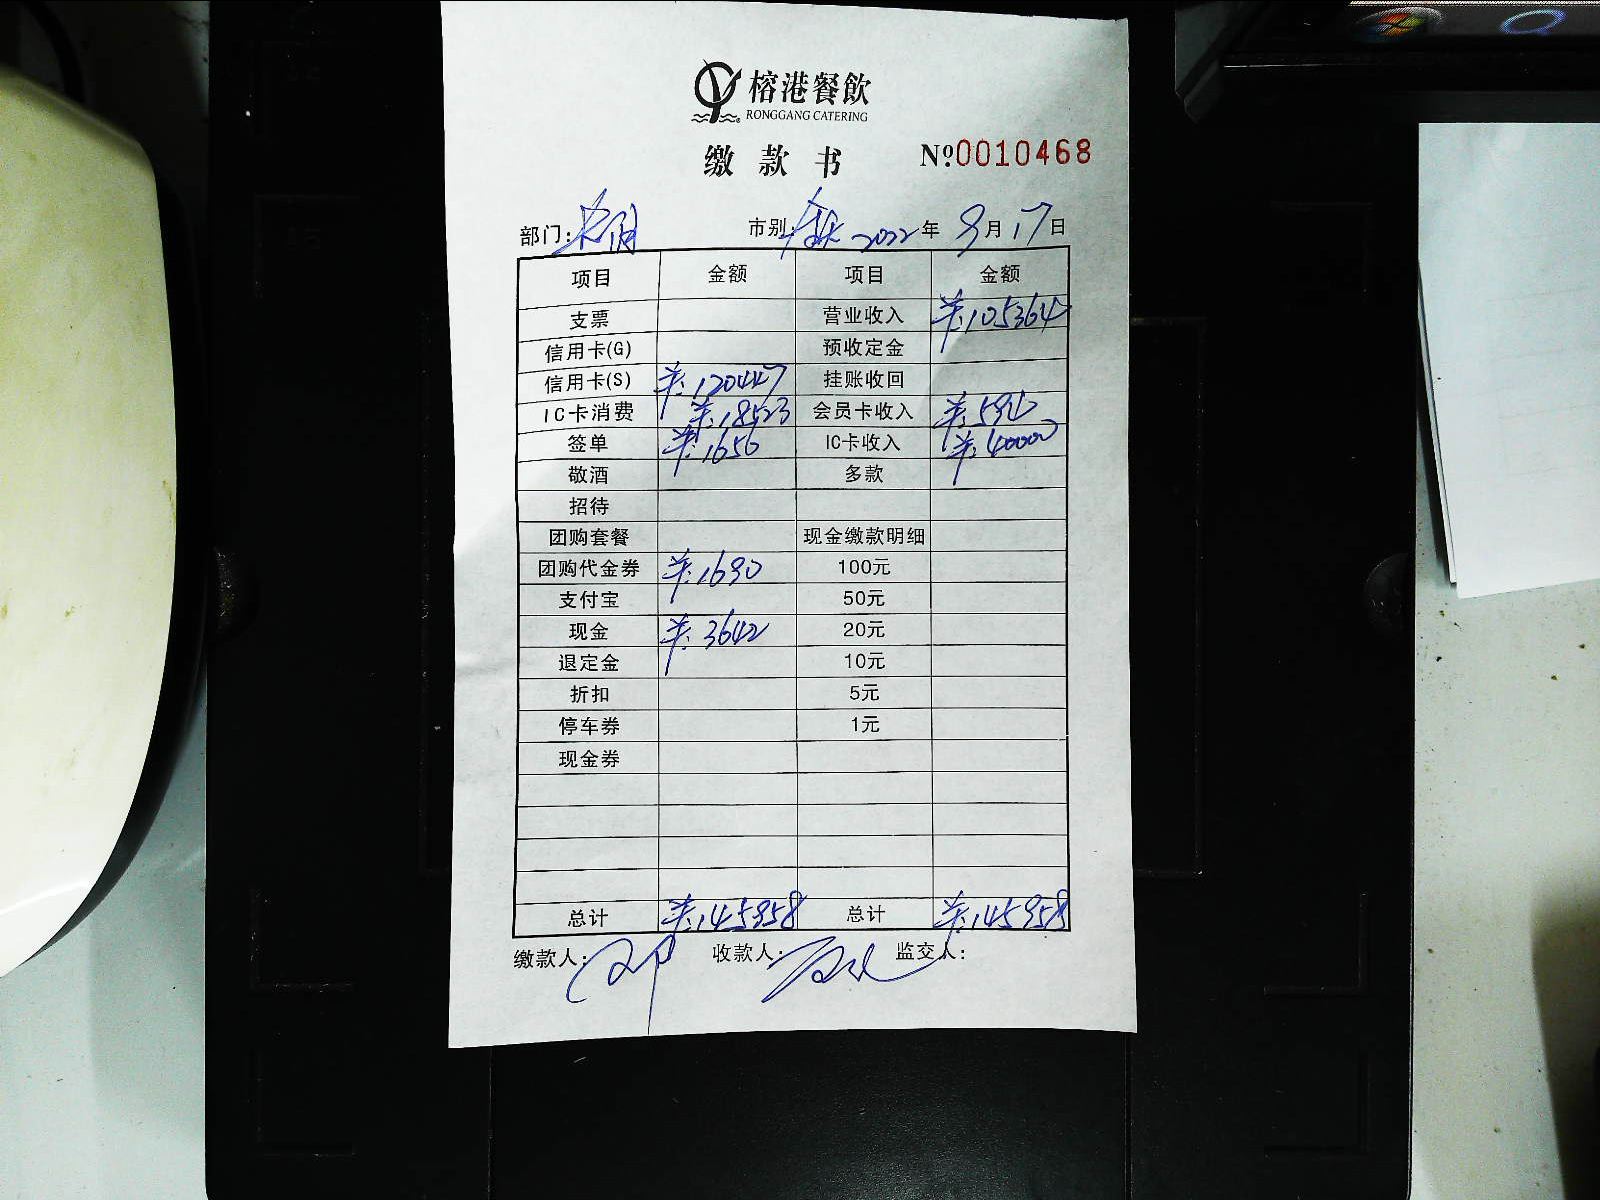 榕港餐飲
RONGGANG CATERING
缴款书 №0010468
部门: 市别: 2022年9月17日
项目 金额 项目 金额
支票 营业收入 ¥:105364
信用卡(G) 预收定金
信用卡(S) ¥:120447 挂账收回
IC卡消费 ¥:18523 会员卡收入 ¥:594
签单 ¥:1656 IC卡收入 ¥:40000
敬酒 多款
招待
团购套餐 现金缴款明细
团购代金券 ¥:1690 100元
支付宝 50元
现金 ¥:3642 20元
退定金 10元
折扣 5元
停车券 1元
现金券
总计 ¥:145958 总计 ¥:145958
缴款人: 收款人: 监交人: